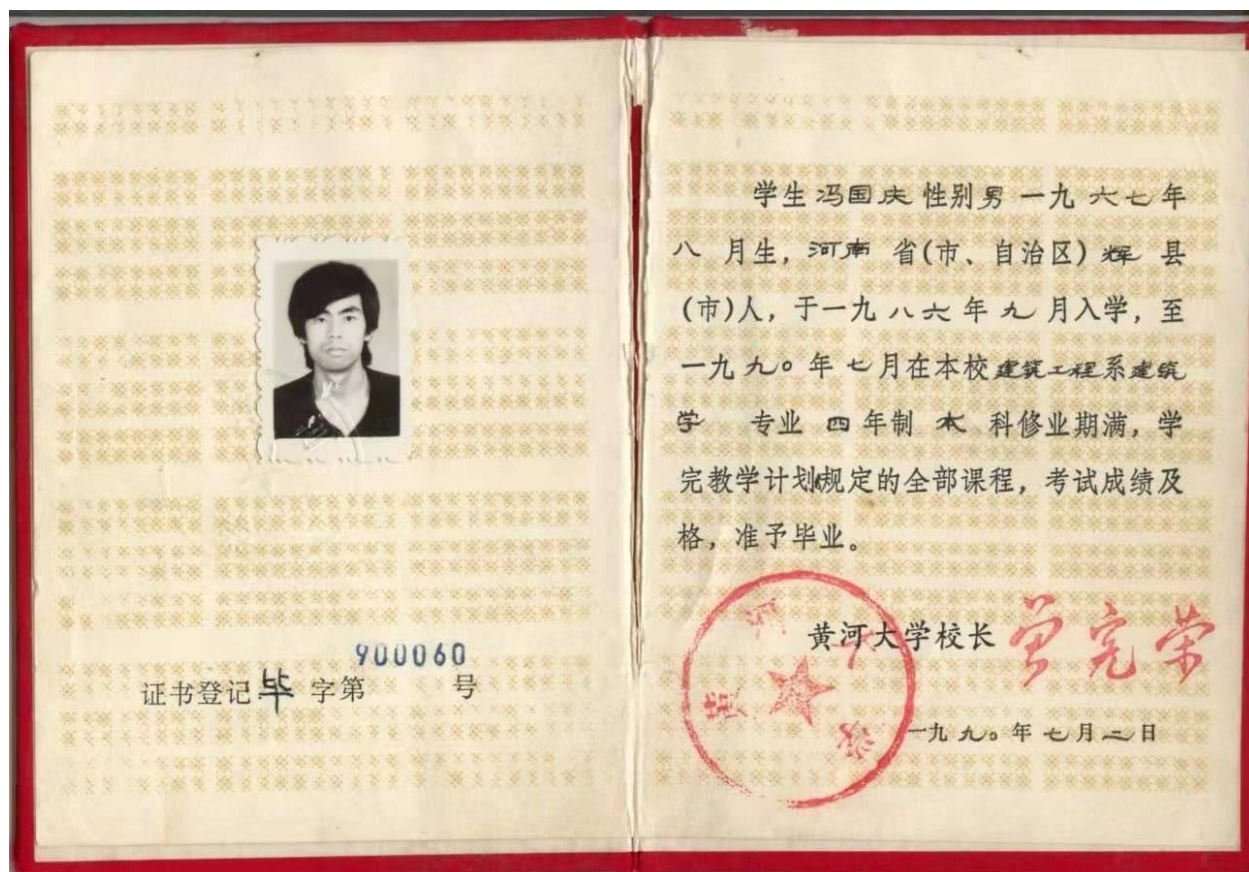 900060
证书登记毕字第 号
学生冯国庆性别男一九六七年
八月生，河南省(市、自治区)辉县
(市)人，于一九八六年九月入学，至
一九九〇年七月在本校建筑工程系建筑
学 专业 四年制 本 科修业期满，学
完教学计划规定的全部课程，考试成绩及
格，准予毕业。
黄河大学校长
黄河大学
一九九〇年七月二日